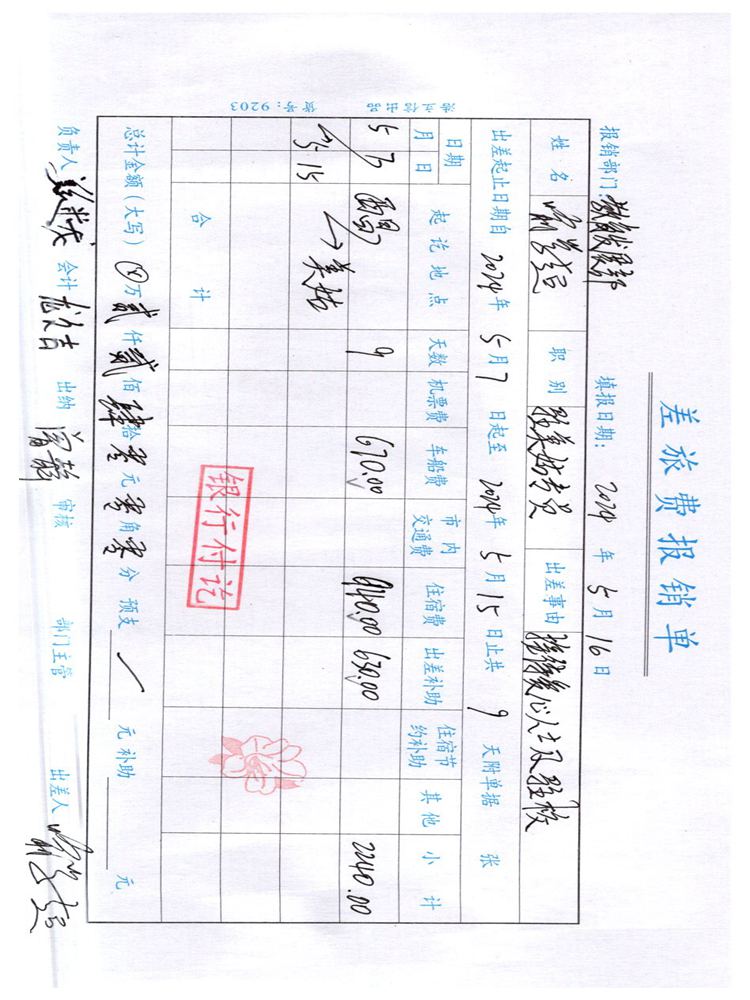 差旅费报销单
报销部门: 教育发展部 填报日期: 2024 年 5 月 16 日
姓名 职别 驻美姑专员 出差事由
出差起止日期自 2024 年 5 月 7 日起至 2024 年 5 月 15 日止共 9 天附单据 张
日期 起讫地点 天数 机票费 车船费 市内交通费 住宿费 出差补助 住宿节约补助 其他 小计
月 日
5 7 西昌 9 670.00 940.00 630.00 2240.00
5 15 →美姑
合计
银行付讫
总计金额(大写) ⊗万 贰仟 贰佰 肆拾 零元 零角 零分 预支 / 元 补助 元
负责人 会计 出纳 审核 部门主管 出差人
货号:9203